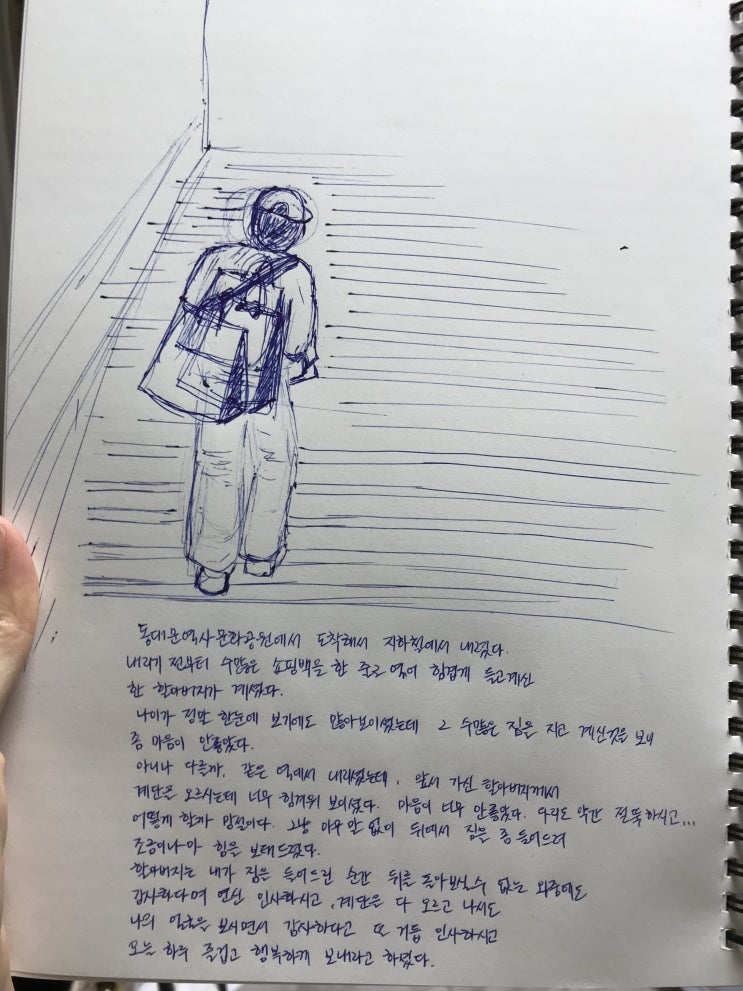 동대문역사문화공원에서 도착해서 지하철에서 내렸다.
내리기 전부터 수많은 쇼핑백을 한 줄로 엮어 힘겹게 들고계신
한 할아버지가 계셨다.
나이가 정말 한눈에 보기에도 많아보이셨는데 그 수많은 짐을 지고 계신것을 보니
좀 마음이 안좋았다.
아니나 다를까, 같은 역에서 내리셨는데, 앞서 가신 할아버지께서
계단을 오르시는데 너무 힘겨워 보이셨다. 마음이 너무 안좋았다. 다리도 약간 절뚝하시고...
어떻게 할까 망설이다. 그냥 아무 말 없이 뒤에서 짐을 좀 들어드려
조금이나마 힘을 보태드렸다.
할아버지는 내가 짐을 들어드린 순간 뒤를 돌아보실수 없는 와중에도
감사하다며 연신 인사하시고, 계단을 다 오르고 나서도
나의 얼굴을 보시면서 감사하다고 또 거듭 인사하시고
오늘 하루 즐겁고 행복하게 보내라고 하셨다.